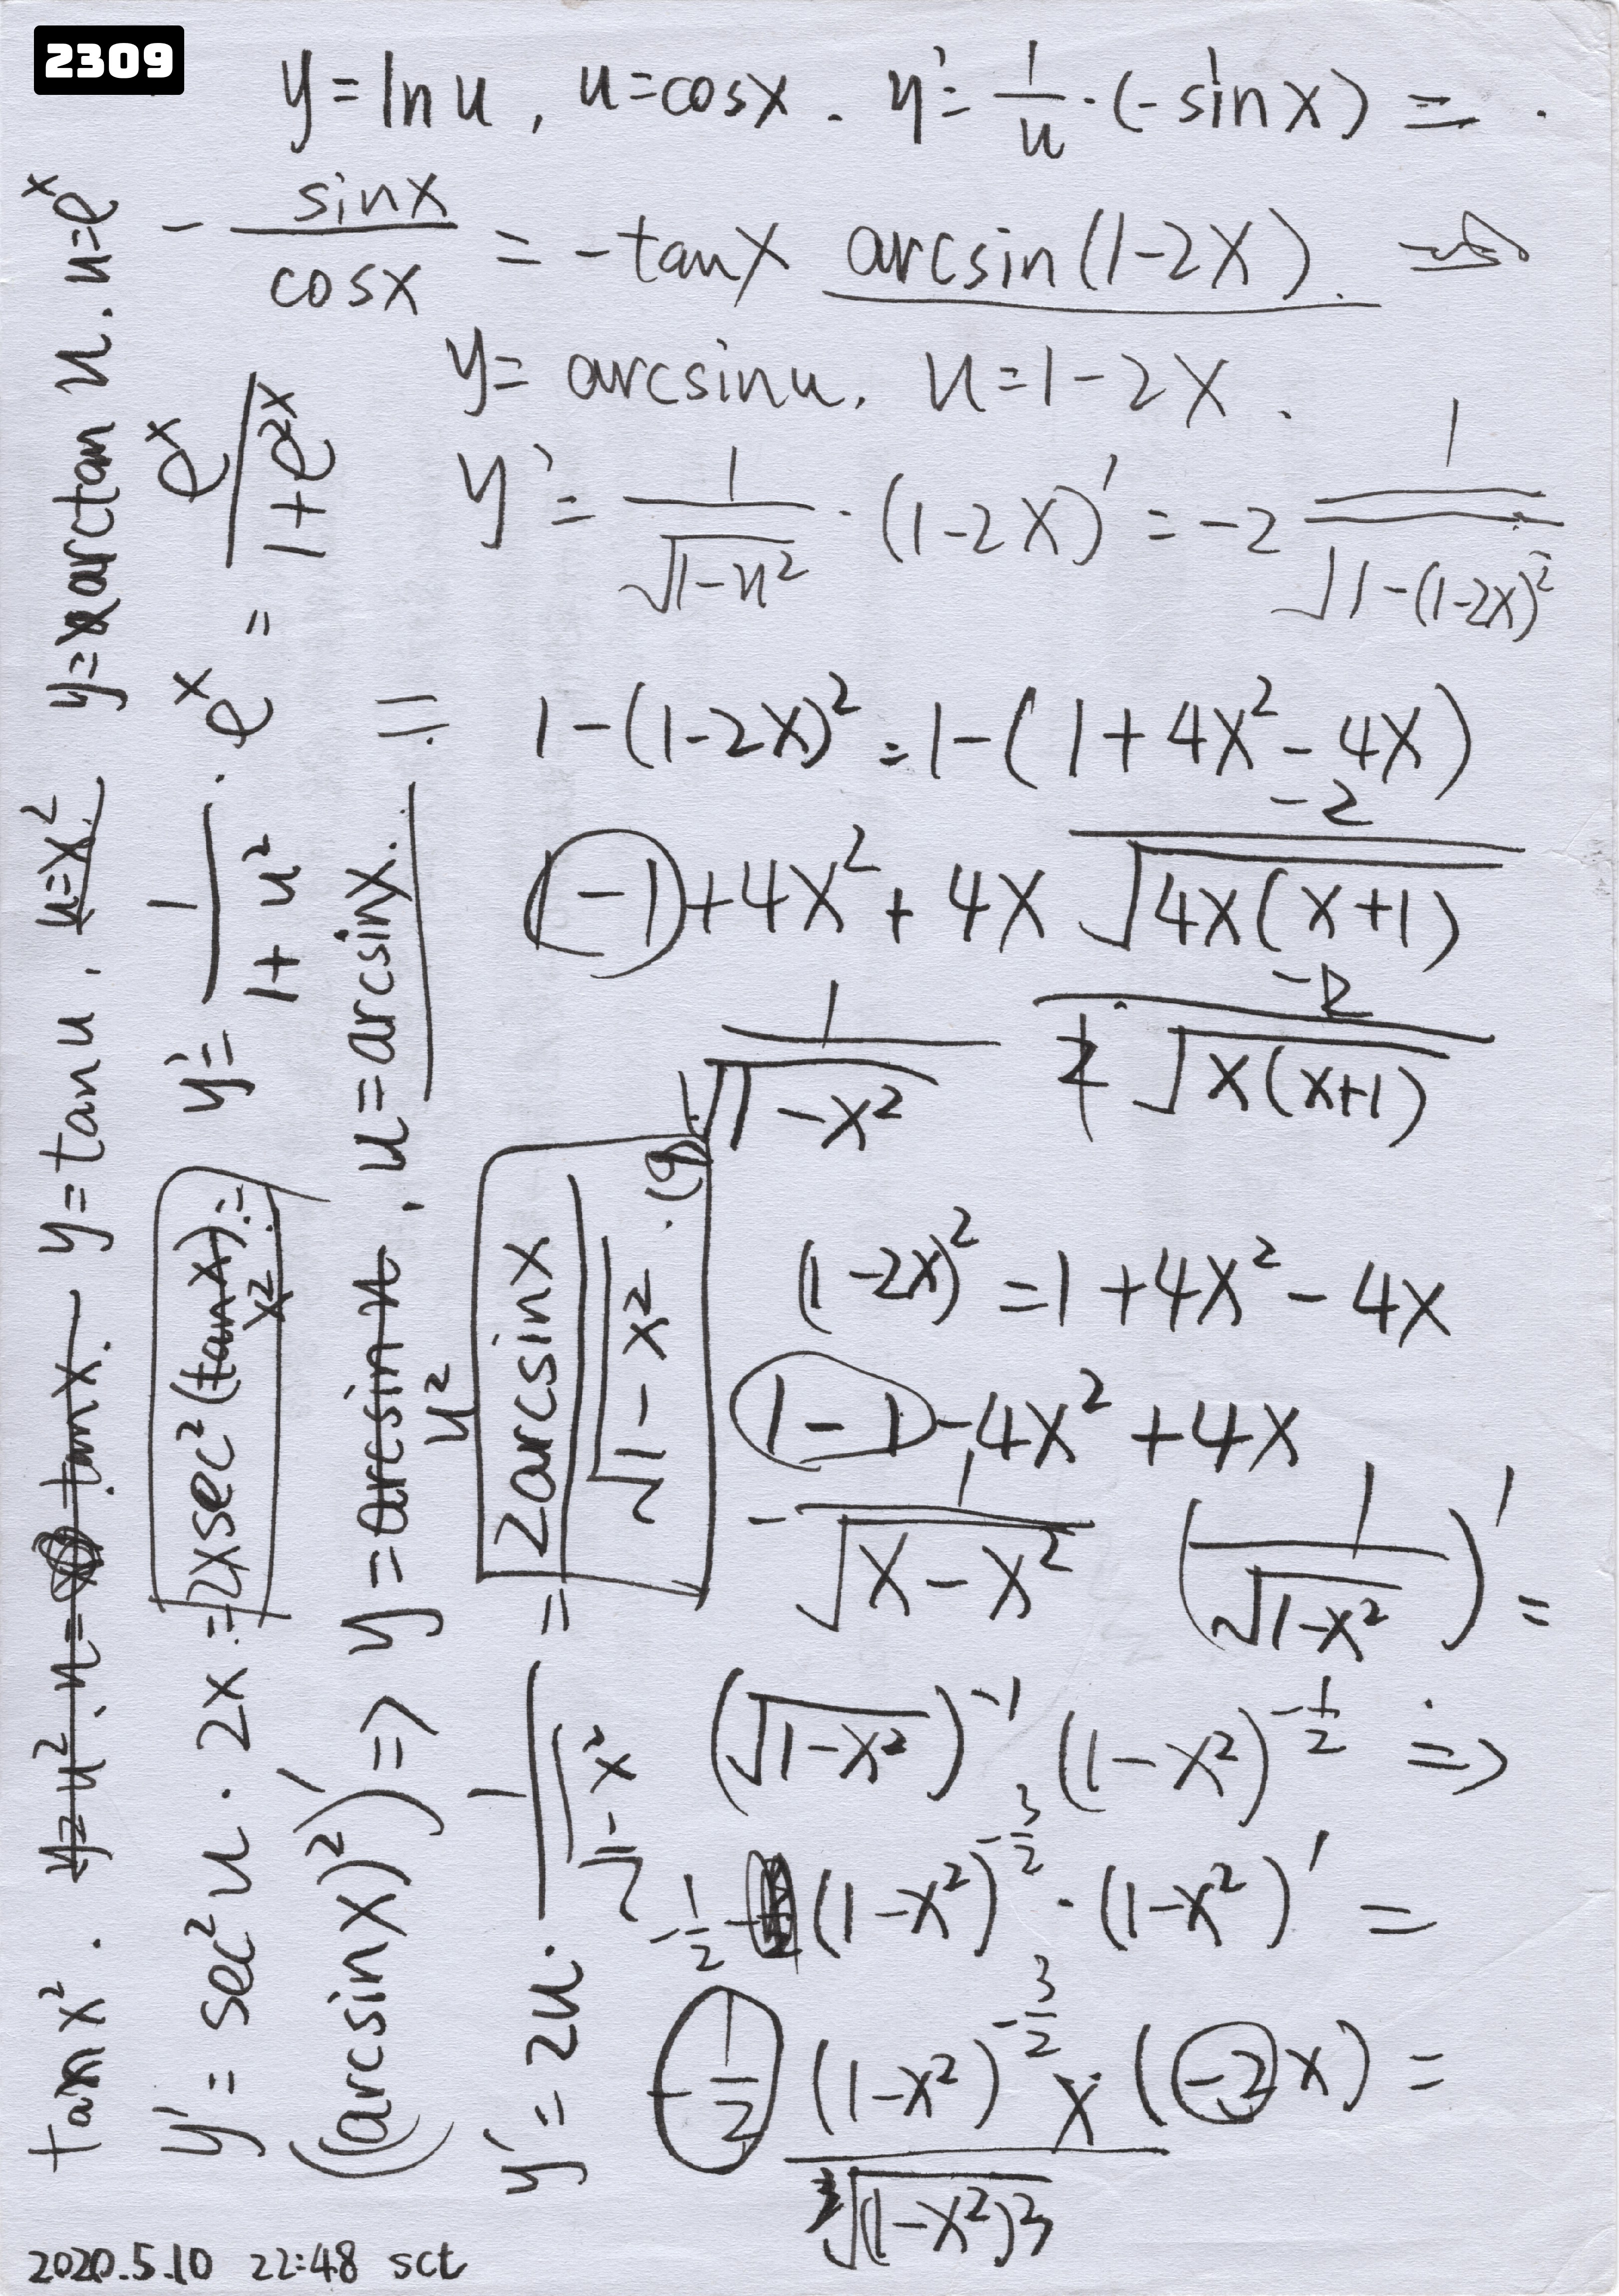 2309
y = ln u , u = cosx . y' = 1/u · (-sinx) = .
- sinx/cosx = -tanx arcsin(1-2x).
y = arcsinu. u = 1-2x .
y' = 1/√(1-u²) · (1-2x)' = -2 1/√(1-(1-2x)²)
1-(1-2x)² = 1-(1+4x²-4x)
1-1+4x²+4x -2/√(4x(x+1))
1/√(1-x²) -2/(2√(x(x+1)))
(1-2x)² = 1+4x²-4x
1-1-4x²+4x
- 1/√(x-x²) (1/√(1-x²))' =
(√(1-x²))⁻¹ (1-x²)^(-1/2) =>
-1/2 (1-x²)^(-3/2) · (1-x²)' =
-1/2 (1-x²)^(-3/2) (-2x) =
x/√((1-x²)³)
tan x² . y=u² . u= tanx. y = tan u . u=x². y= arctan u . u=e^x
y' = sec²u · 2x = 2xsec²(tanx) x² y' = 1/(1+u²) · e^x = e^x/(1+e^(2x))
((arcsinx)²)' => y = arcsin u u² , u = arcsinx. =
y' = 2u · 1/√(1-x²) = 2arcsinx/√(1-x²) .
2020.5.10 22:48 sct